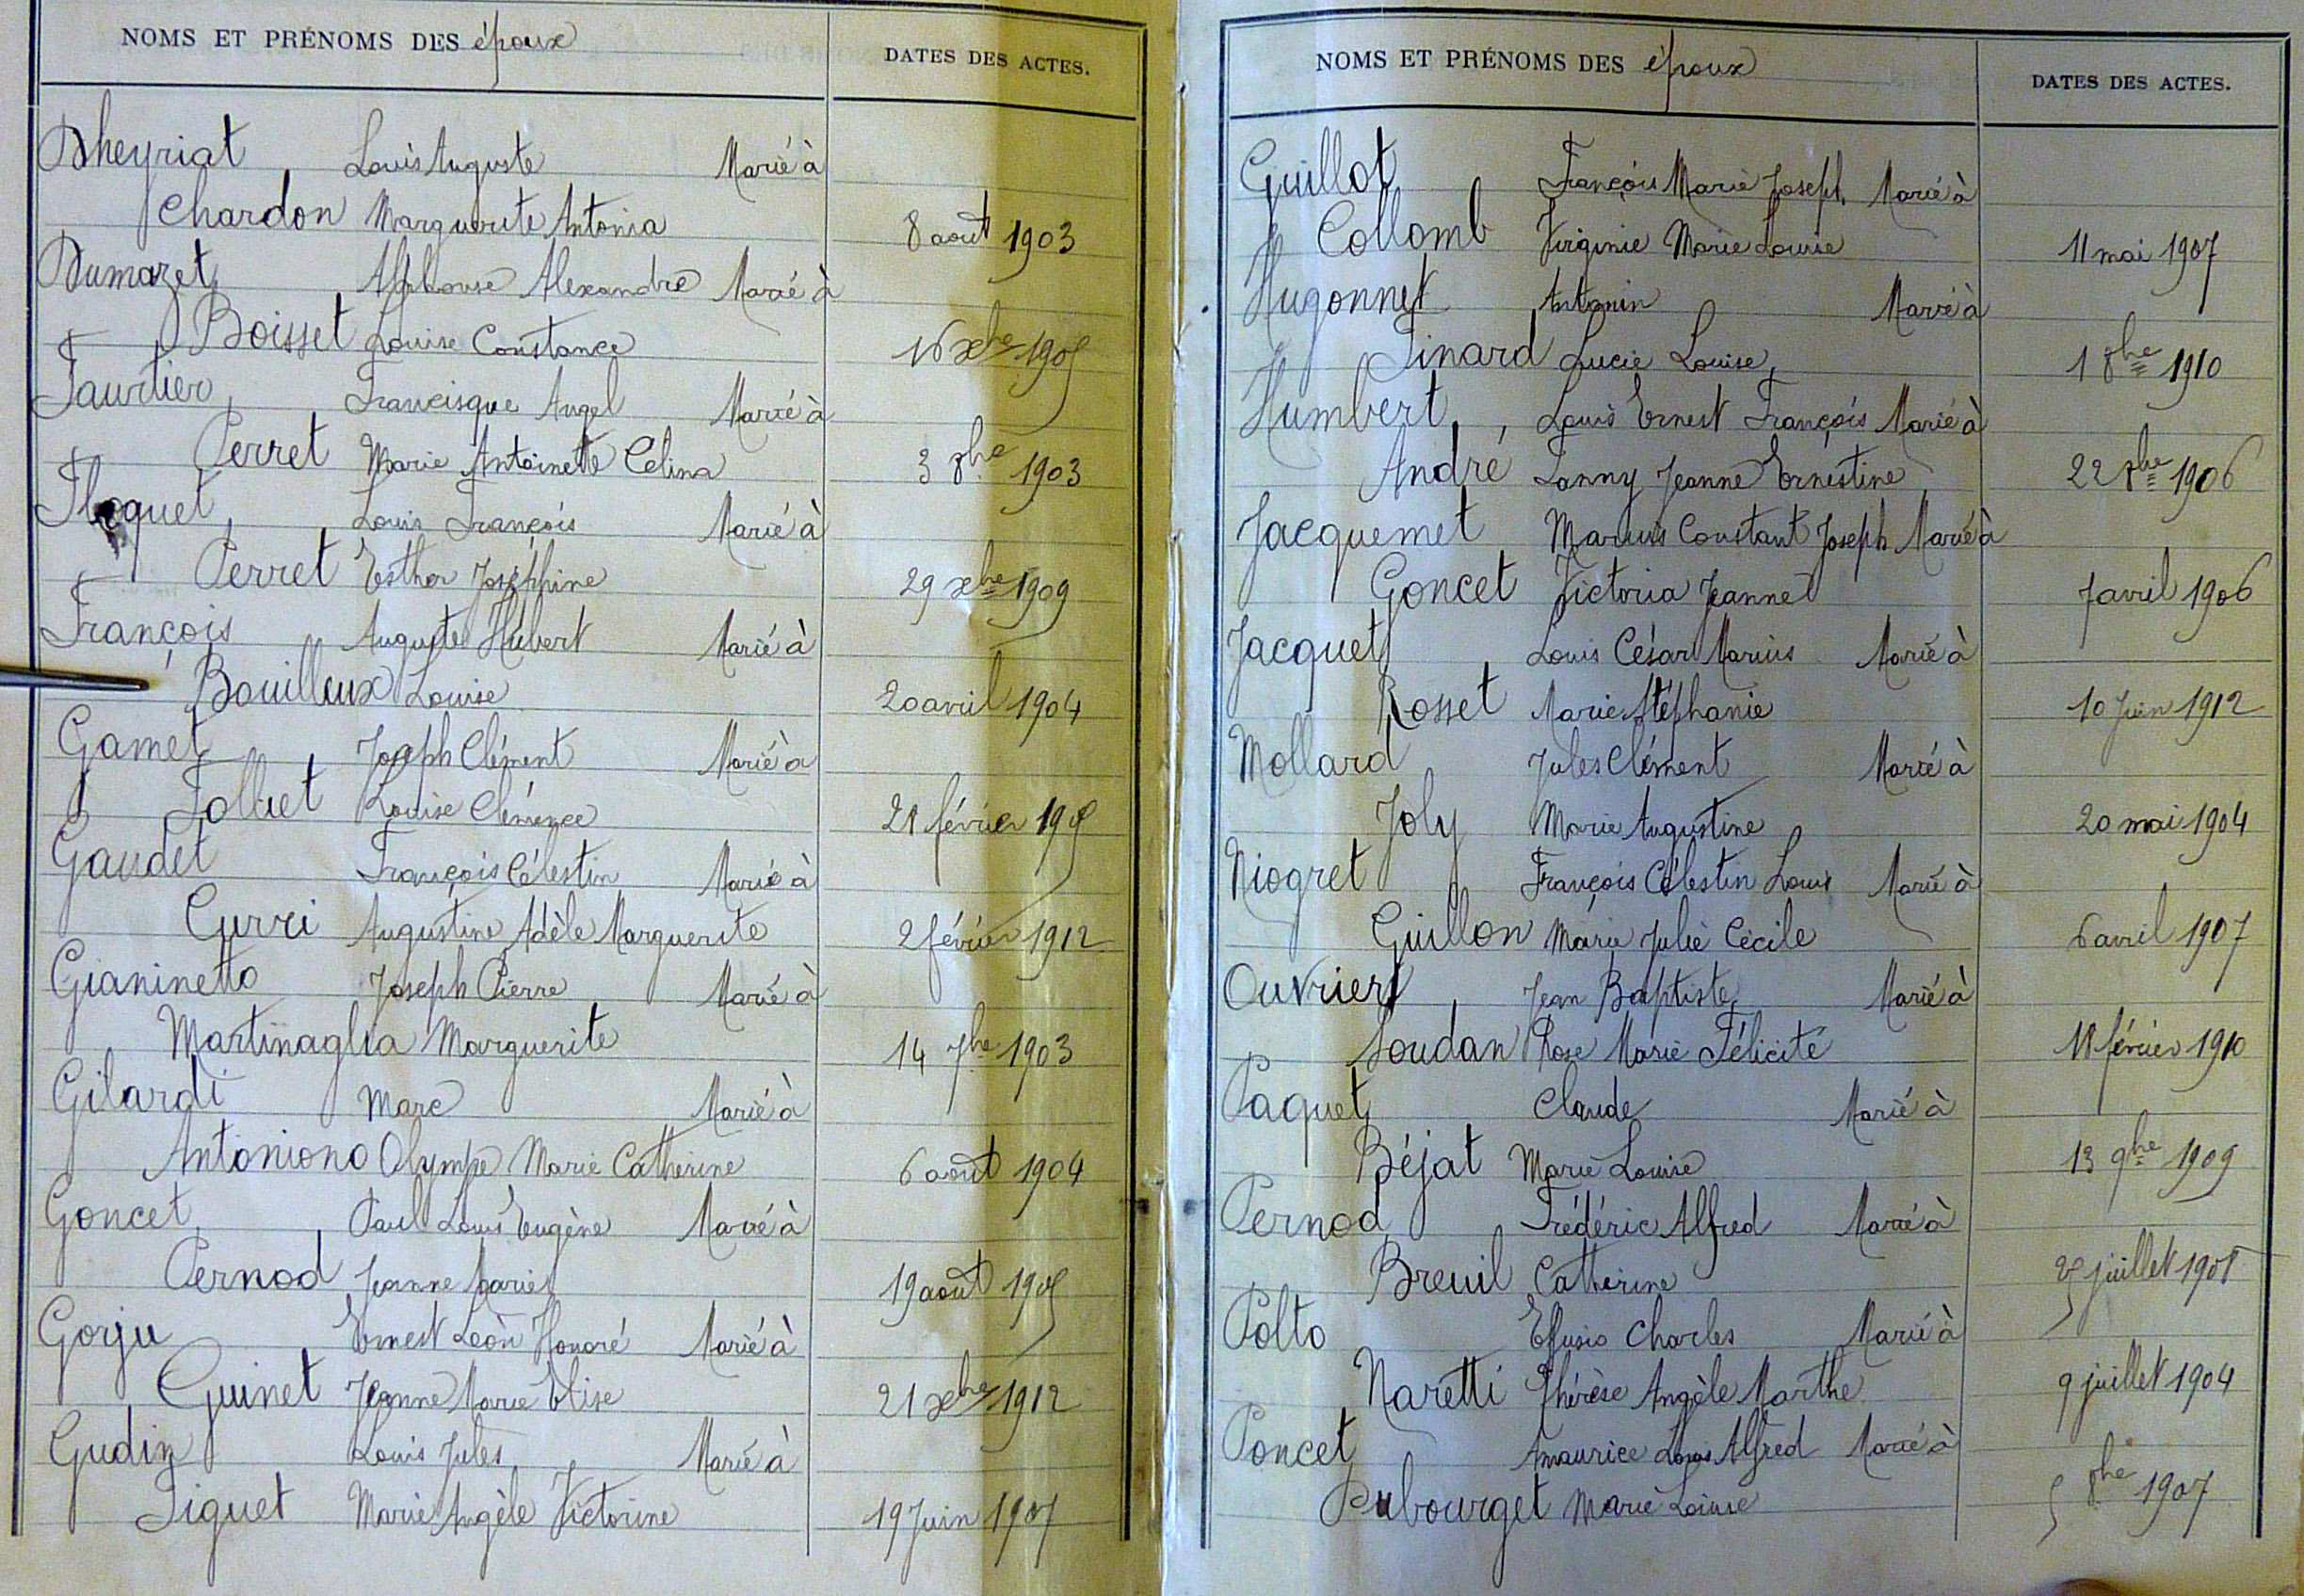 NOMS ET PRÉNOMS DES époux DATES DES ACTES.
Dheyriat Louis Auguste Marié à
Chardon Marguerite Antonia 8 aout 1903
Dumazet Alphonse Alexandre Marié à
Boisset Louise Constance 16 xbre 1905
Faurtier Francisque Angel Marié à
Perret Marie Antoinette Celina 3 8bre 1903
Floquet Louis François Marié à
Perret Esther Joséphine 29 xbre 1909
François Auguste Hubert Marié à
Bouilloux Louise 20 avril 1904
Gamet Joseph Clément Marié à
Folliet Louise Clémence février
Gaudet François Célestin Marié à
Curri Augustine Adèle Marguerite 2 février 1912
Gianinetto Joseph Pierre Marié à
Martinaglia Marguerite 14 7bre 1903
Gilardi Marc Marié à
Antoniono Olympe Marie Catherine 6 août 1904
Goncet Paul Louis Eugène Marié à
Pernod Jeanne Marie 19 août 1905
Gorju Ernest Léon Honoré Marié à
Guinet Jeanne Marie Elise 21 xbre 1912
Gudin Louis Jules Marié à
Figuet Marie Angèle Victorine 19 Juin
NOMS ET PRÉNOMS DES époux DATES DES ACTES.
Guillot François Marie Joseph Marié à
Collomb Virginie Marie Louise 11 mai 1907
Hugonnet Antonin Marié à
Tinard Lucie Louise 1 8bre 1910
Humbert Louis Ernest François Marié à
André Fanny Jeanne Ernestine 22 1906
Jacquemet Marius Constant Joseph Marié à
Goncet Victoria Jeanne 7 avril 1906
Jacquet Louis César Marius Marié à
Rosset Marie Stéphanie 10 Juin 1912
Mollard Jules Clément Marié à
Joly Marie Augustine 20 mai 1904
Niogret François Célestin Louis Marié à
Guillon Marie Julie Cécile 6 avril 1907
Ouvrier Jean Baptiste Marié à
Soudan Rose Marie Félicité février 1910
Paquet Claude Marié à
Béjat Marie Louise 13 9bre 1909
Pernod Frédéric Alfred Marié à
Breuil Catherine juillet
Polto Efusio Charles Marié à
Naretti Thérèse Angèle Marthe 9 juillet 1904
Poncet Amaurice Louis Alfred Marié à
Dubourget Marie Louise 5 8bre 1907